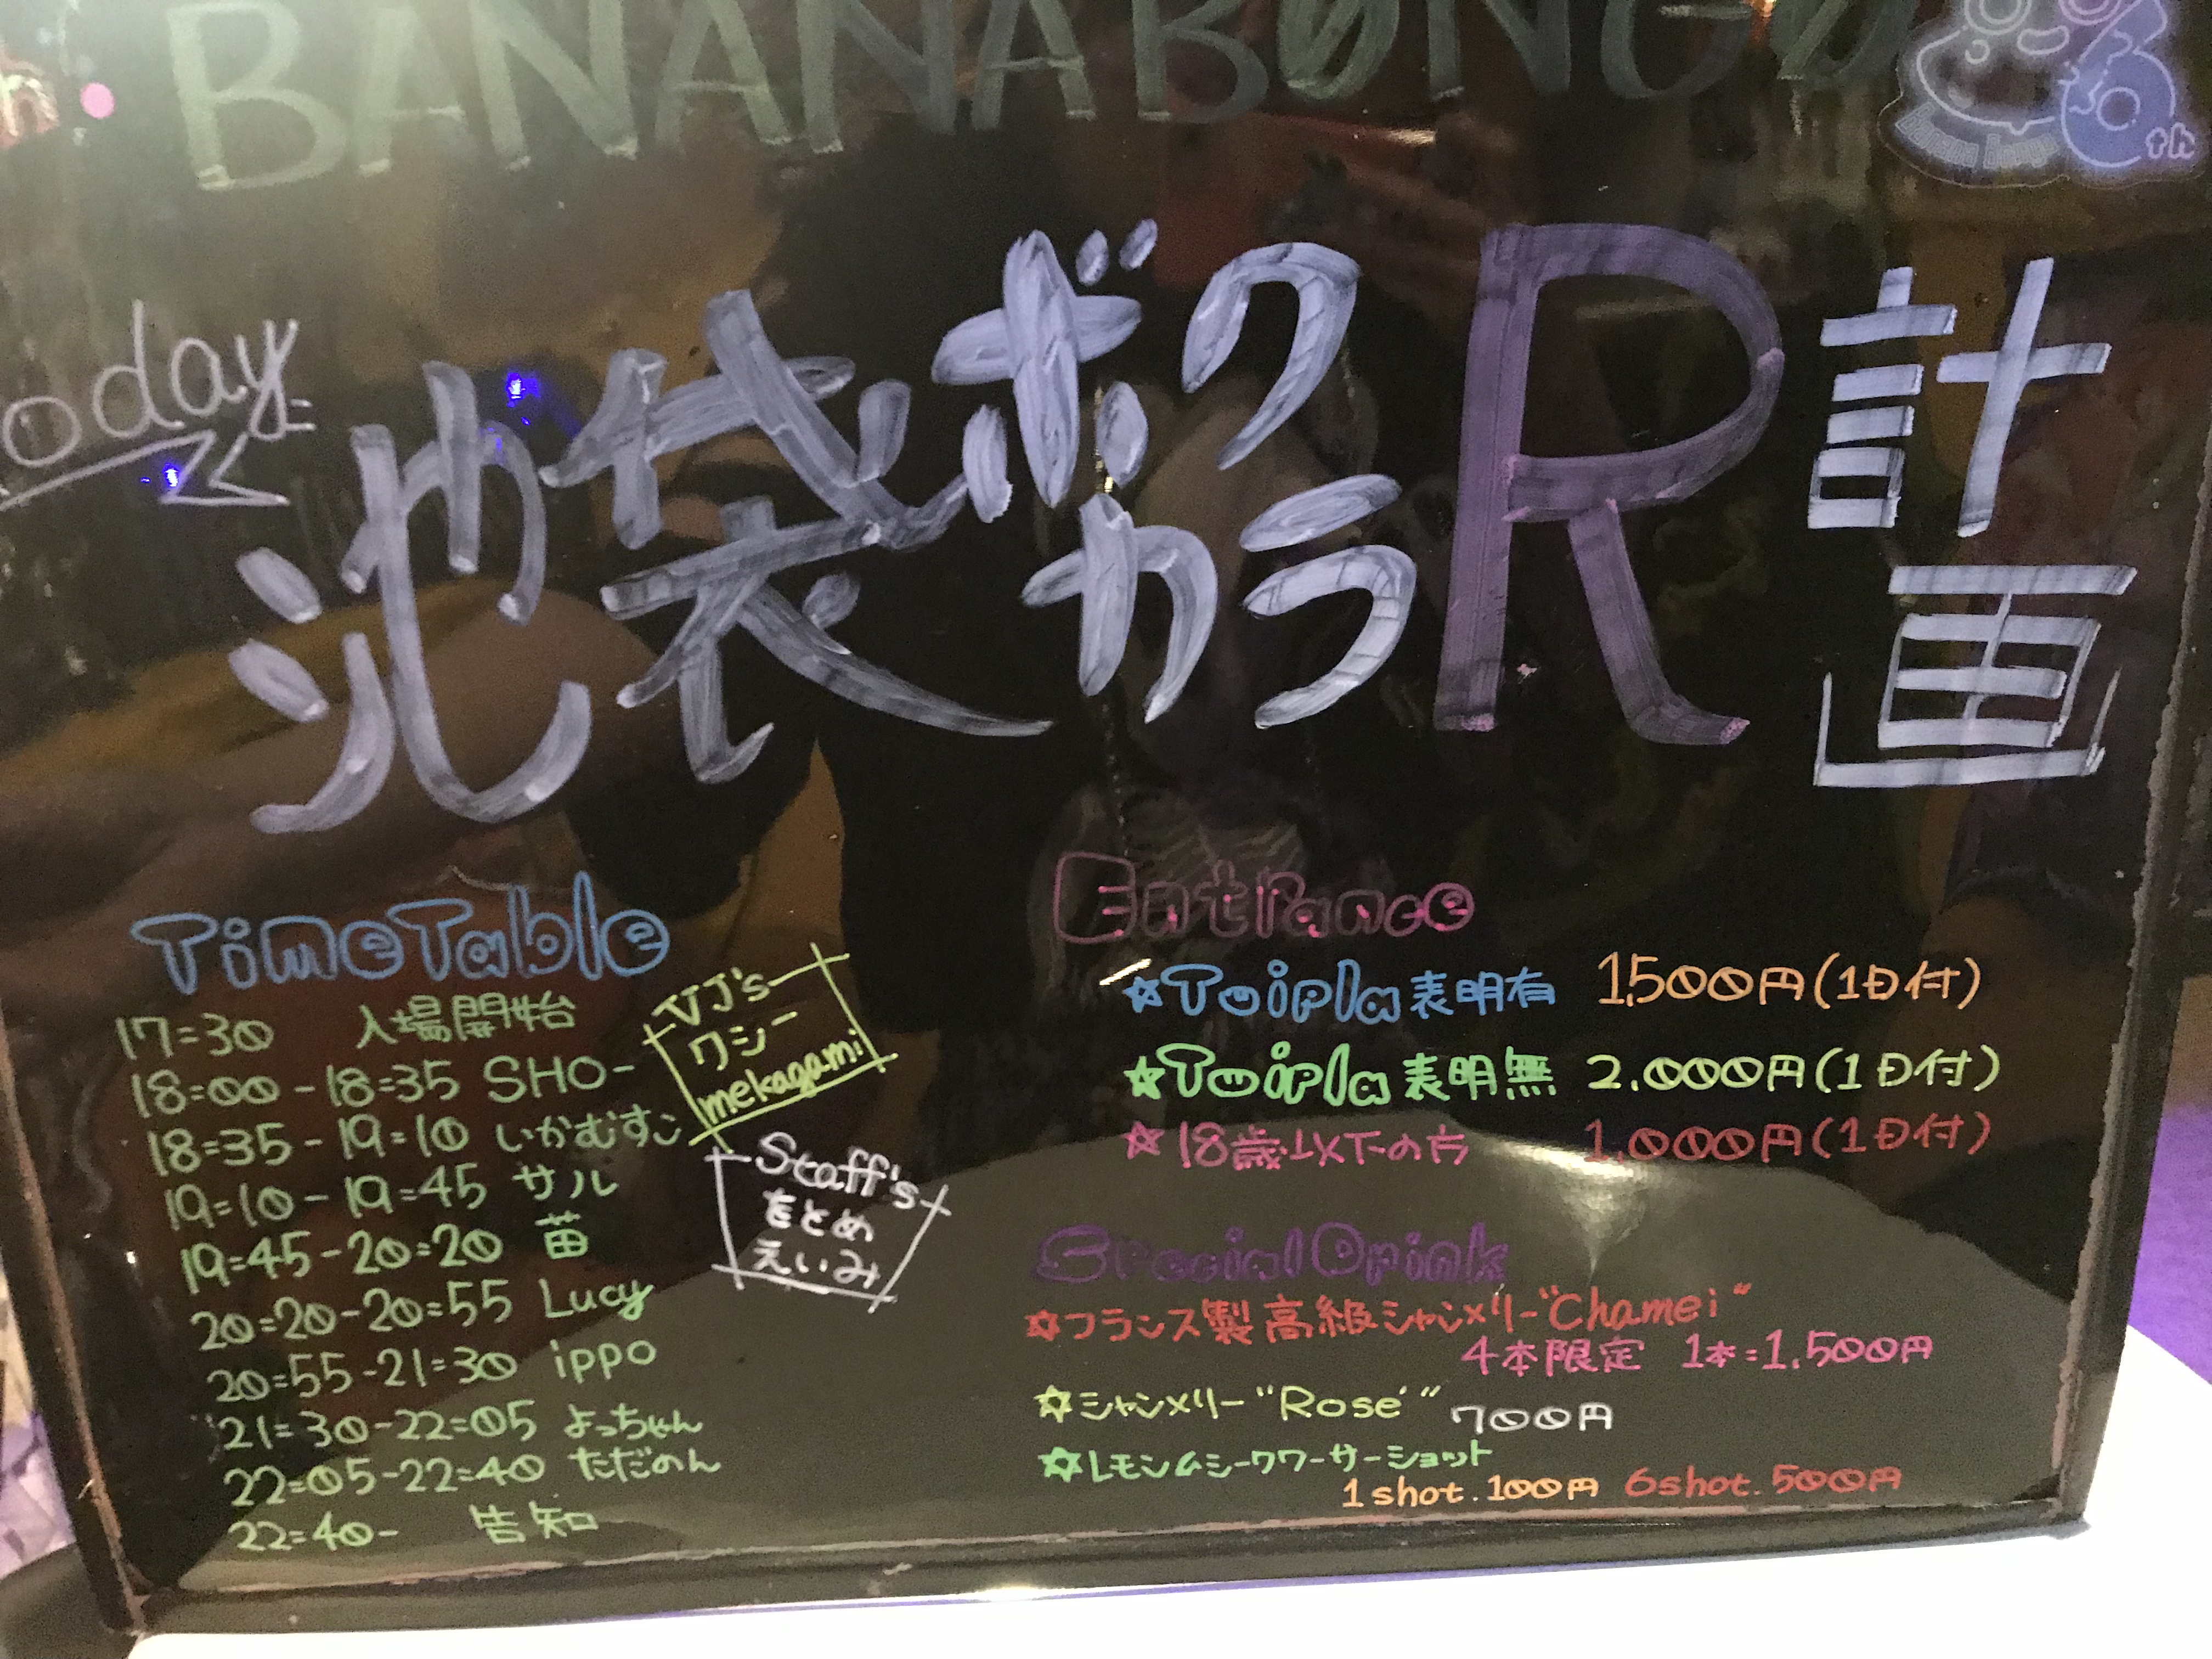 BANANABONGO
6th
oday
池袋ボカラクR計画
TimeTable
17:30 入場開始
18:00-18:35 SHO-
18:35-19:10 いかむすこ
19:10-19:45 サル
19:45-20:20 苗
20:20-20:55 Lucy
20:55-21:30 ippo
21:30-22:05 よっちゃん
22:05-22:40 ただのん
22:40- 告知
VJ's
ワシー
mekagami
Staff's
をとめ
えいみ
Entrance
☆Twipla表明有 1,500円(1D付)
☆Twipla表明無 2.000円(1D付)
☆18歳以下の方 1,000円(1D付)
Special Drink
☆フランス製高級シャンメリー"Chamei"
4本限定 1本:1,500円
☆シャンメリー"Rose" 700円
☆レモンムシークワーサーショット
1shot.100円 6shot.500円